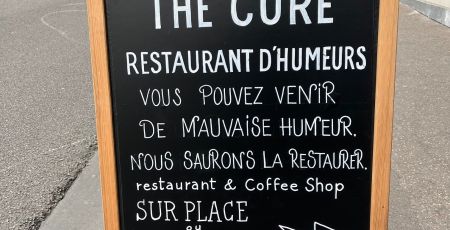 THE CURE
RESTAURANT D'HUMEURS
VOUS POUVEZ VENIR
DE MAUVAISE HUMEUR.
NOUS SAURONS LA RESTAURER.
restaurant & Coffee Shop
SUR PLACE